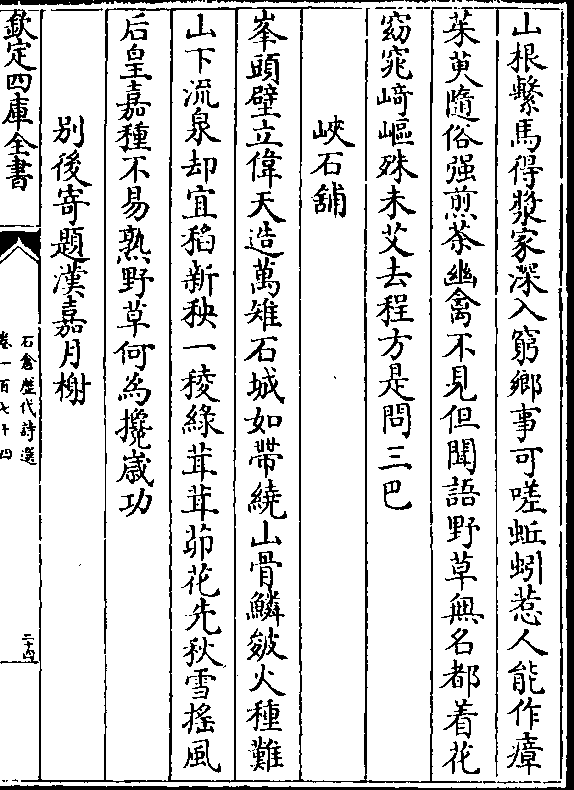 山根繫馬得漿家深入窮鄉事可嗟蚯蚓惹人能作瘴
茱萸隨俗强煎茶幽禽不見但聞語野草無名都着花
窈窕﨑嶇殊未艾去程方是問三巴
峽石舖
峯頭壁立偉天造萬雉石城如帶繞山骨鱗皴火種難
山下流泉却宜稻新秧一稜綠茸茸茆花先秋雪搖風
后皇嘉種不易熟野草何為攙歲功
別後寄題漢嘉月榭
欽定四庫全書
石倉歷代詩選
卷一百七十四
二十四